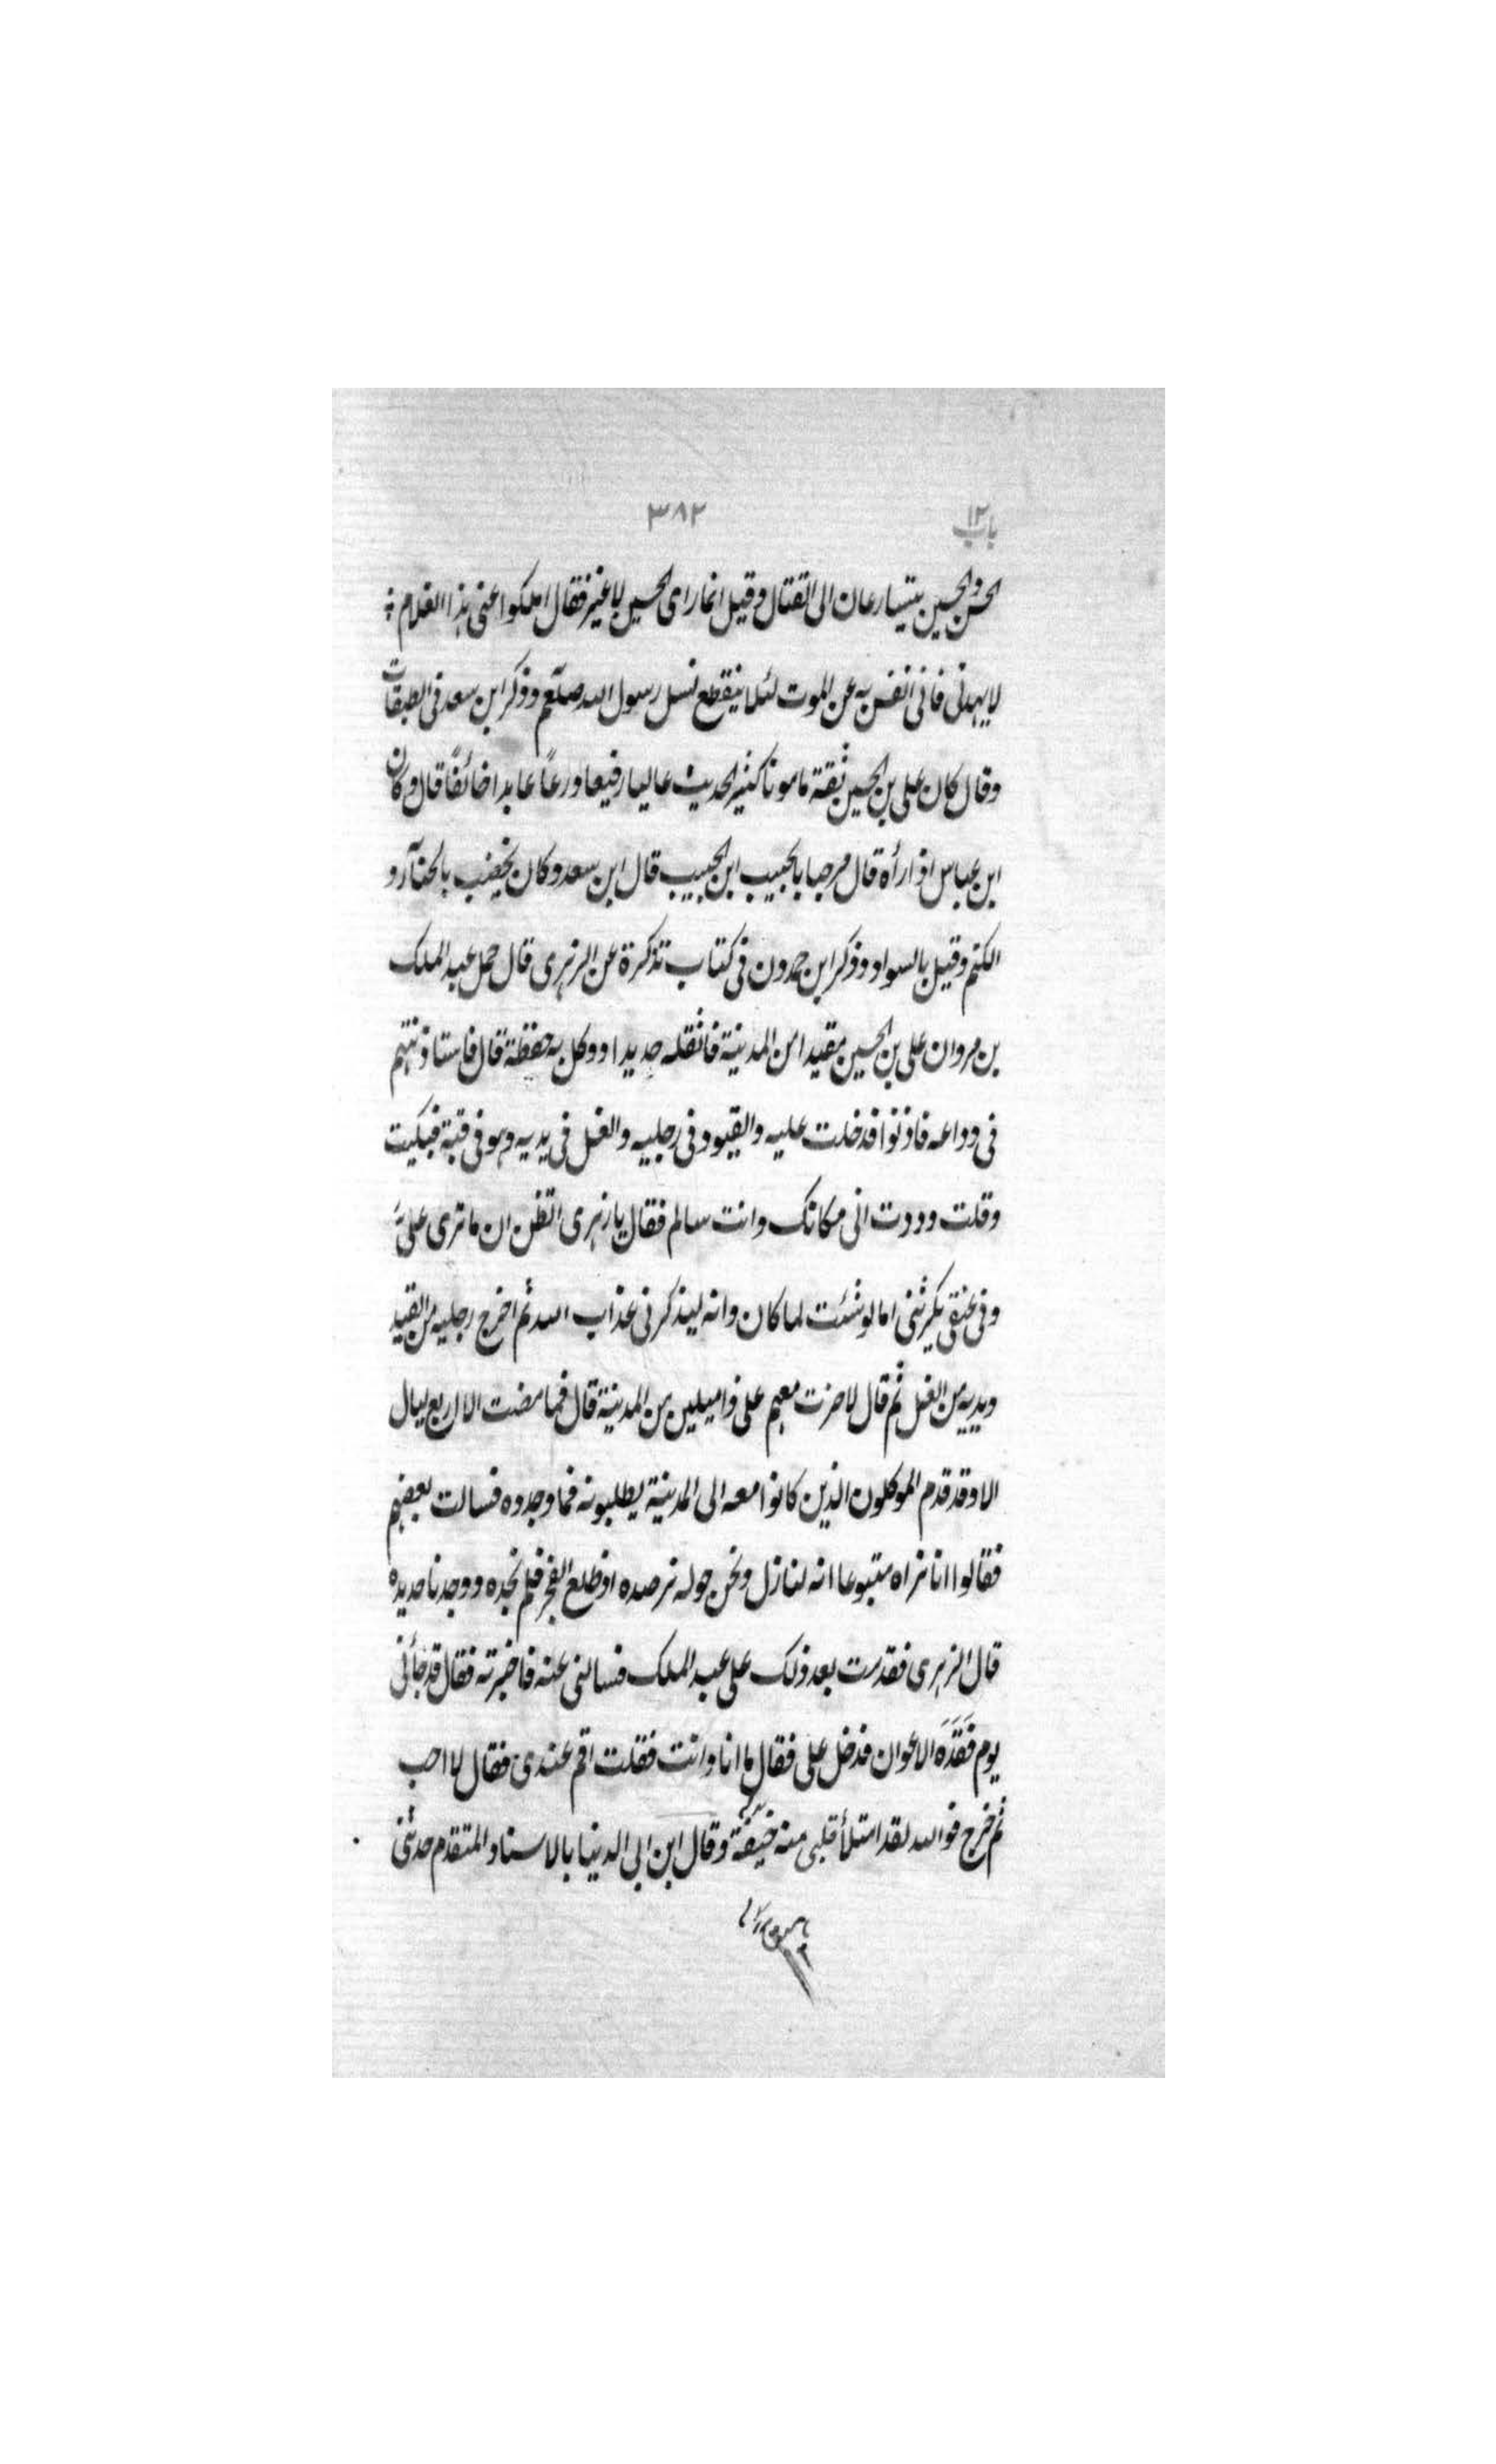 باب ١٢
٣٨٢
الحسن والحسين يتسارعان الى القتال وقيل انما راى الحسين لا غير فقال املكوا عنى هذا الغلام
لا يهدنى فانى انفس به عن الموت لئلا ينقطع نسل رسول الله صلعم وذكر ابن سعد فى الطبقات
وقال كان على بن الحسين ثقة مامونا كثير الحديث عاليا رفيعا ورعاً عابدا خائفاً قال وكان
ابن عباس اذا رأه قال مرحبا بالحبيب ابن الحبيب قال ابن سعد وكان يخضب بالحنآء و
الكتم وقيل بالسواد وذكر ابن حمدون فى كتاب تذكرة عن الزهرى قال حمل عبد الملك
بن مروان على بن الحسين مقيدا من المدينة فاثقله حديدا ووكل به حفظة قال فاستاذنتهم
فى وداعه فاذنوا فدخلت عليه والقيود فى رجليه والغل فى يديه وهو فى قبة فبكيت
وقلت وددت انى مكانك وانت سالم فقال يا زهرى اتظن ان ما ترى علىّ
وفى عنقى يكرثنى اما لو شئت لما كان وانه ليذكرنى عذاب الله ثم اخرج رجليه من القيد
ويديه من الغل ثم قال لا جزت معهم على ذا ميلين من المدينة قال فما مضت الا اربع ليال
الا وقد قدم الموكلون الذين كانوا معه الى المدينة يطلبونه فما وجدوه فسالت بعضهم
فقالوا انا نراه متبوعا انه لنازل ونحن حوله نرصده اذ طلع الفجر فلم نجده ووجدنا حديده
قال الزهرى فقدمت بعد ذلك على عبد الملك فسالنى عنه فاخبرته فقال قد جائنى
يوم فَقَدَه الاعوان فدخل على فقال ما انا وانت فقلت اقم عندى فقال لا احب
ثم خرج فوالله لقد امتلأ قلبى منه خيفة وقال ابن ابى الدنيا بالاسناد المتقدم حدثنى